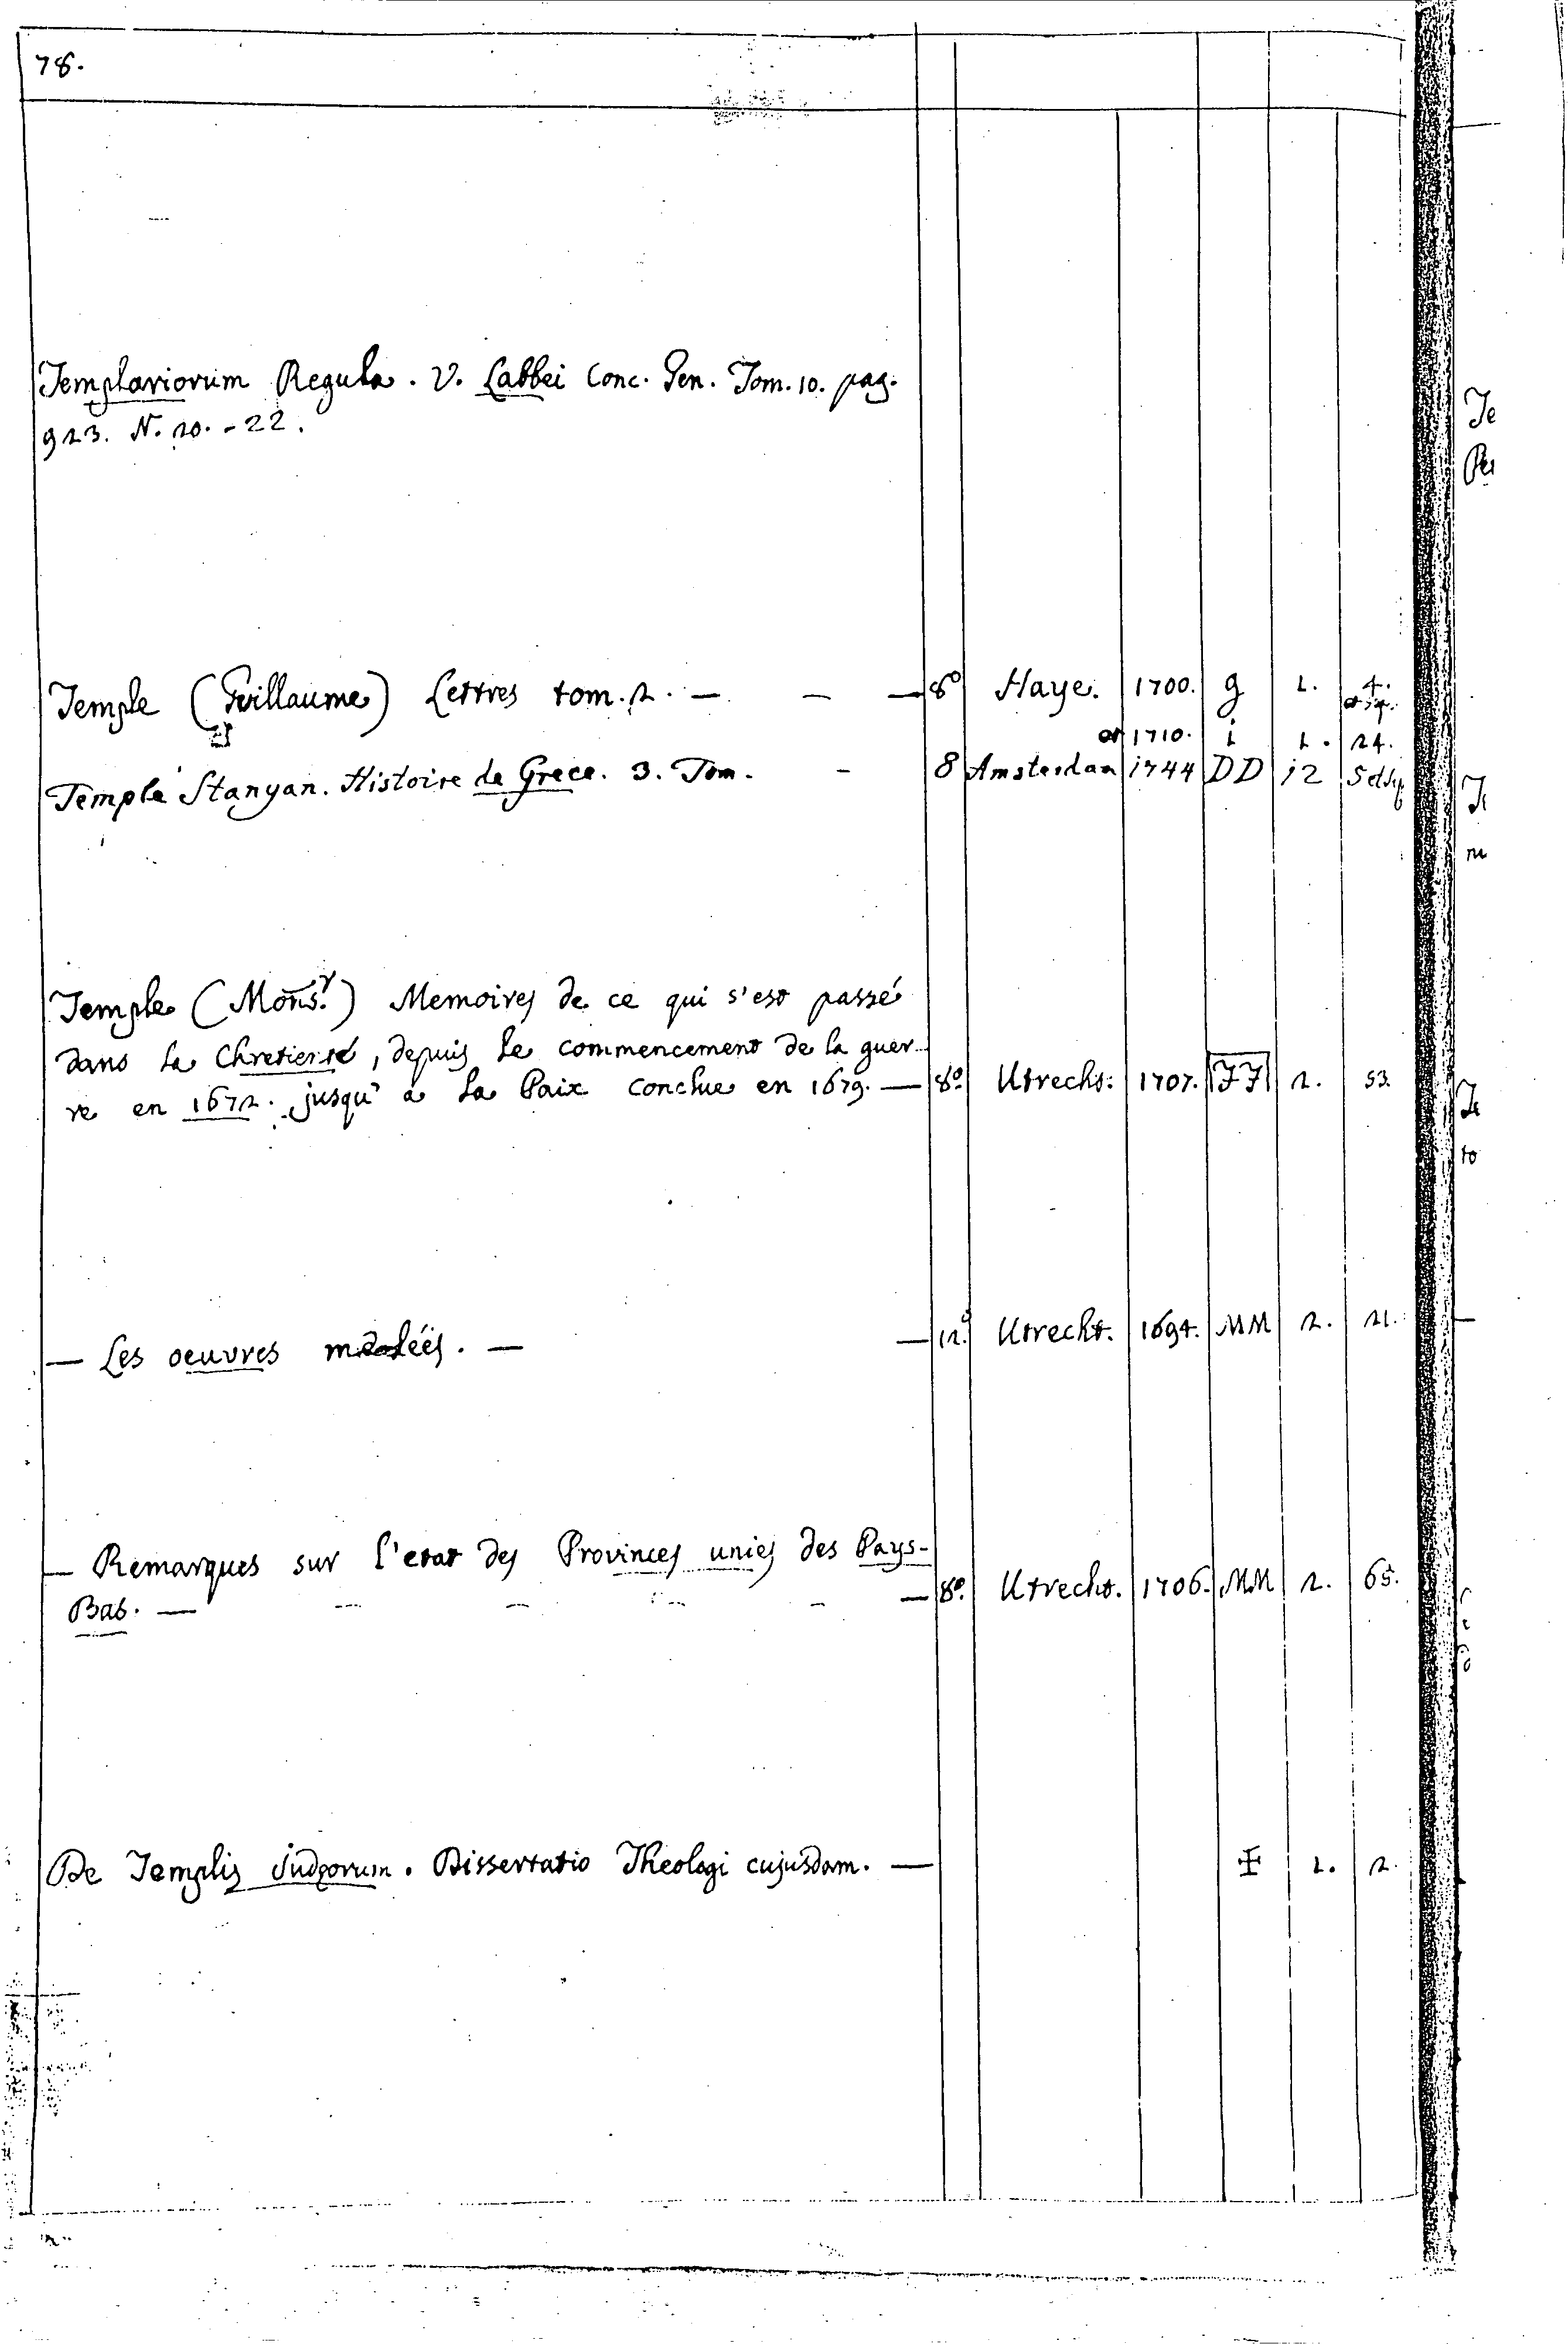 78.
Templariorum Regula. V. Labbei Conc. Gen. Tom. 10. pag.
923. N. 20. - 22.
Temple (Guillaume) Lettres tom. 2. — — — 8º Haye. 1700. g 1. 4. et sq.
et 1710. i 1. 24.
Temple Stanyan. Histoire de Grece. 3. Tom. - 8 Amsterdam 1744 DD i2 5 et sq
Temple (Monsr.) Memoires de ce qui s'est passé
dans la Chretienté, depuis le commencement de la guer-
re en 1672. jusqu' a la Paix conclue en 1679. — 8º Utrecht. 1707. FF 2. 53.
— Les oeuvres meslées. — — 12º Utrecht. 1694. MM 2. 21.
— Remarques sur l'etat des Provinces unies des Pays-
Bas. — — — — — — 8º. Utrecht. 1706. MM 2. 65.
De Templis Judæorum. Dissertatio Theologi cujusdam. — 1. 2.